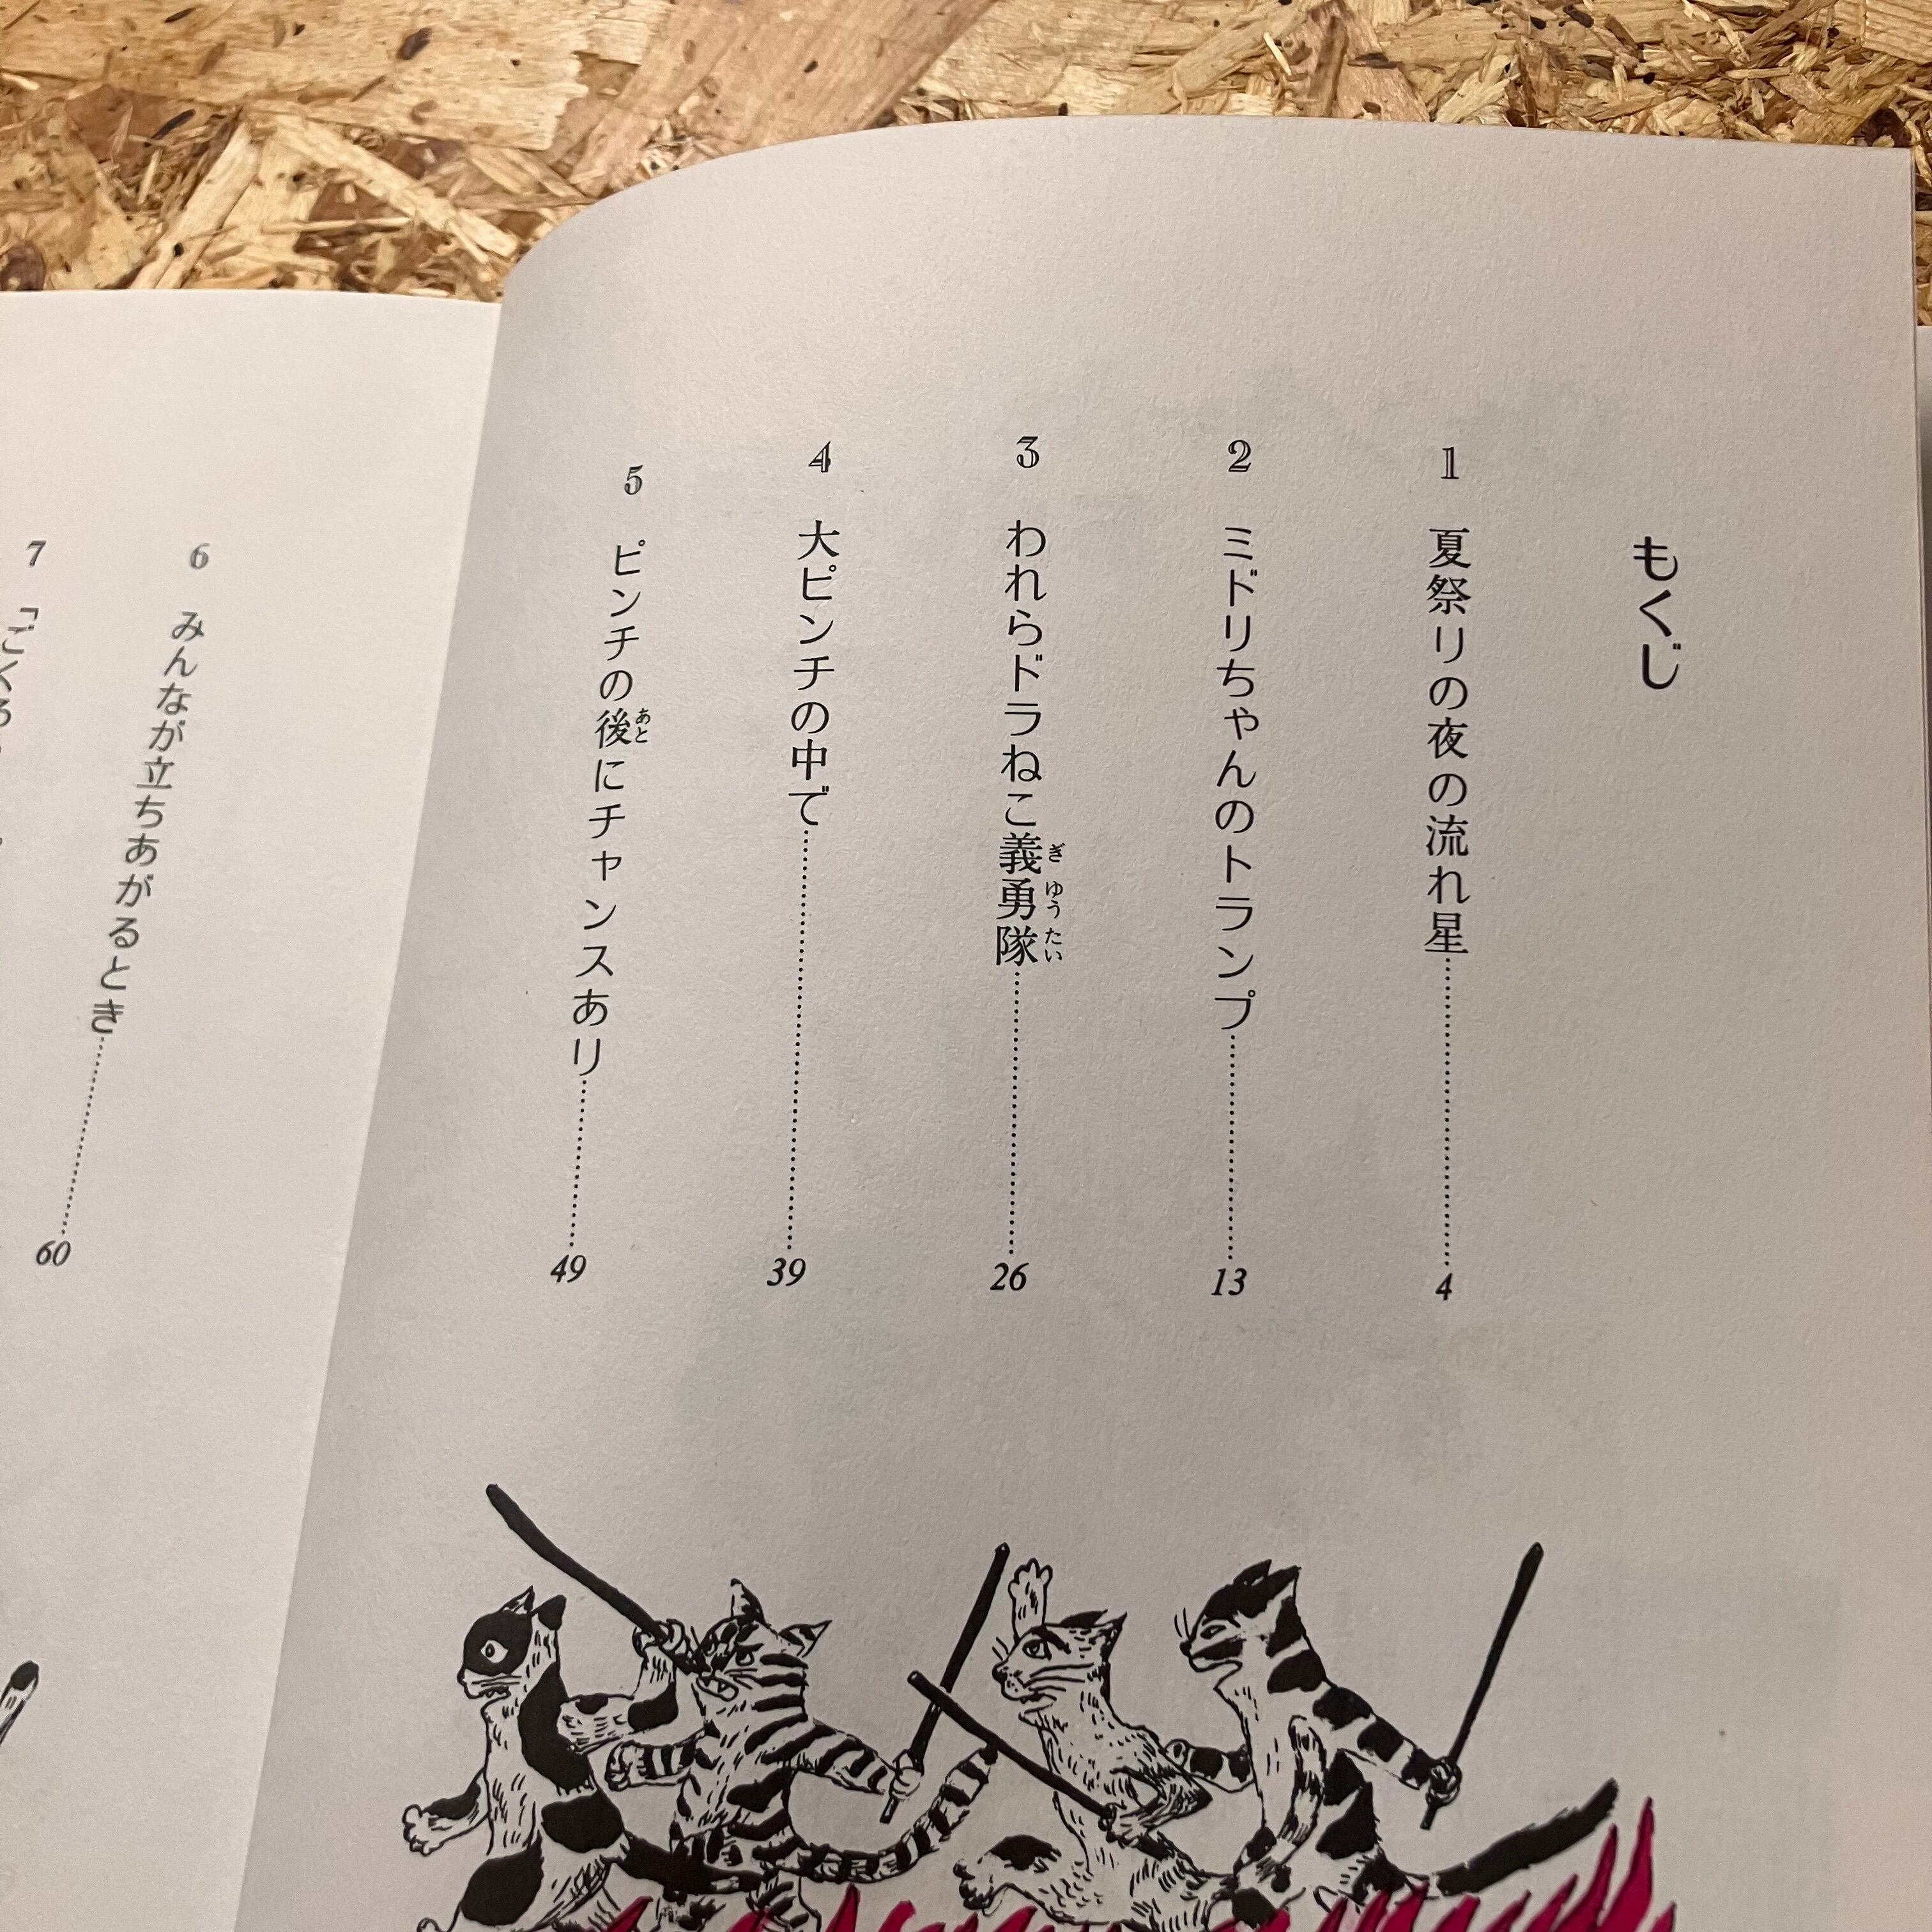 もくじ
1 夏祭りの夜の流れ星……4
2 ミドリちゃんのトランプ……13
3 われらドラねこ義勇隊……26
ぎ ゆう たい
4 大ピンチの中で……39
5 ピンチの後にチャンスあり……49
あと
6 みんなが立ちあがるとき……60
7 「ごくろ